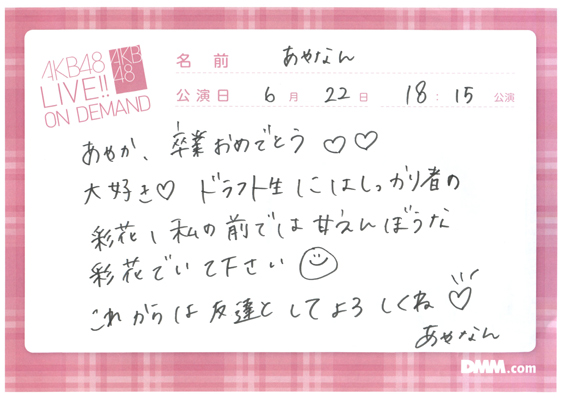 AKB48
LIVE!!
ON DEMAND
AKB
48
名前 あやなん
公演日 6月 22日 18:15 公演
あやか、卒業おめでとう♡♡
大好き♡ ドラフト生にはしっかり者の
彩花、私の前では甘えんぼうな
彩花でいて下さい
これからは友達としてよろしくね♡
あやなん
DMM.com